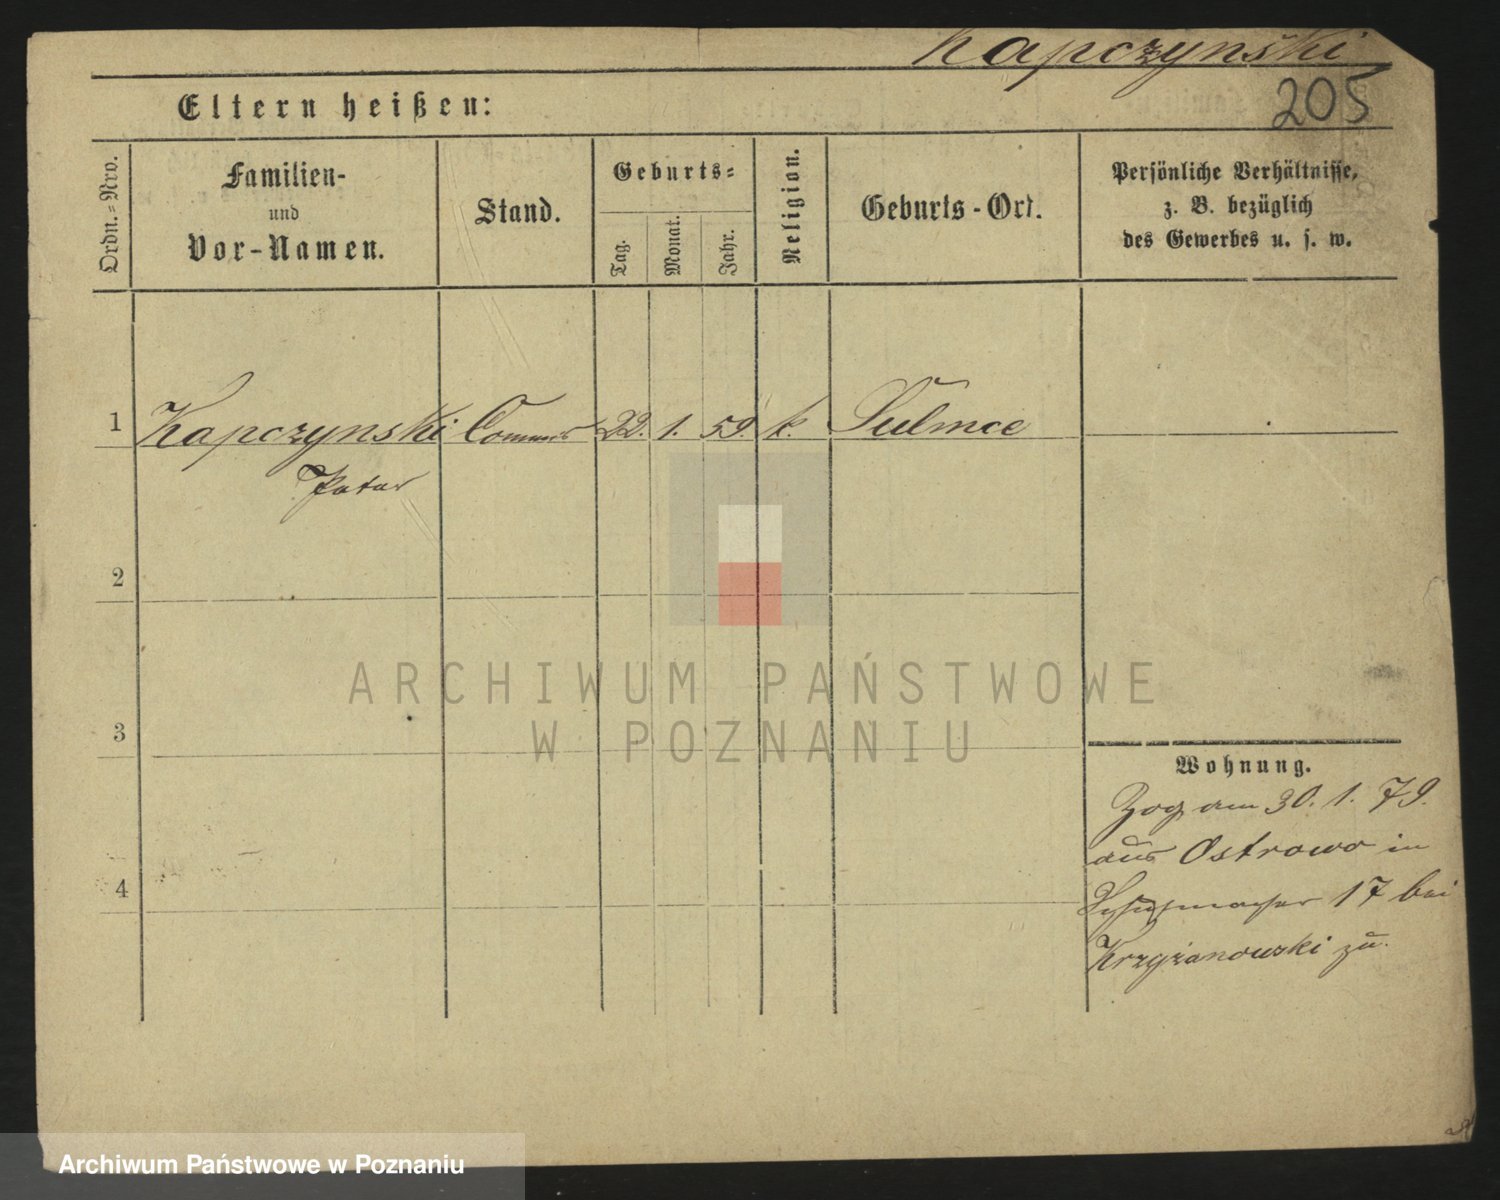 Kapczynski
205
Eltern heißen:
Ordn.=Nro.
Familien-
und
Vor-Namen.
Stand.
Geburts=
Tag.
Monat.
Jahr.
Religion.
Geburts-Ort.
Persönliche Verhältnisse,
z. B. bezüglich
des Gewerbes u. s. w.
1 Kapczynski Commis 22. 1. 59. k. Sulmce
Peter
2
3
4
Wohnung.
Zog am 30. 1. 79.
aus Ostrowo in
Schuhmacher 17 bei
Krzyżanowski zu.
ARCHIWUM PAŃSTWOWE
W POZNANIU
Archiwum Państwowe w Poznaniu